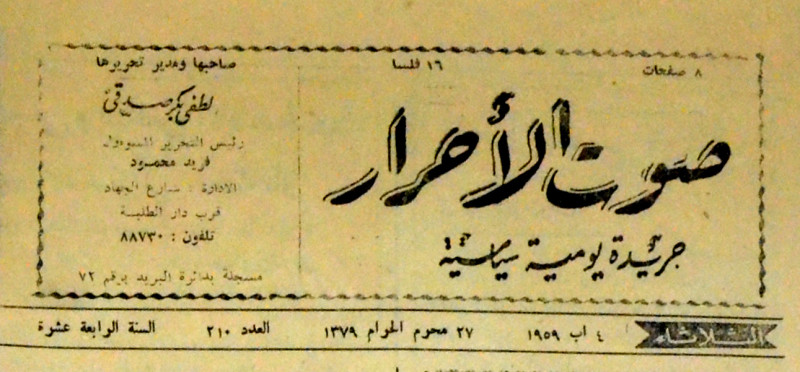 ٨ صفحات
١٦ فلسا
صوت الأحرار
جريدة يومية سياسية
صاحبها ومدير تحريرها
لطفي بكر صدقي
رئيس التحرير المسؤول
فريد محمود
الادارة : شارع الجهاد
قرب دار الطلبة
تلفون : ٨٨٧٣٠
مسجلة بدائرة البريد برقم ٧٢
الثلاثاء ٤ اب ١٩٥٩ ٢٧ محرم الحرام ١٣٧٩ العدد ٢١٠ السنة الرابعة عشرة